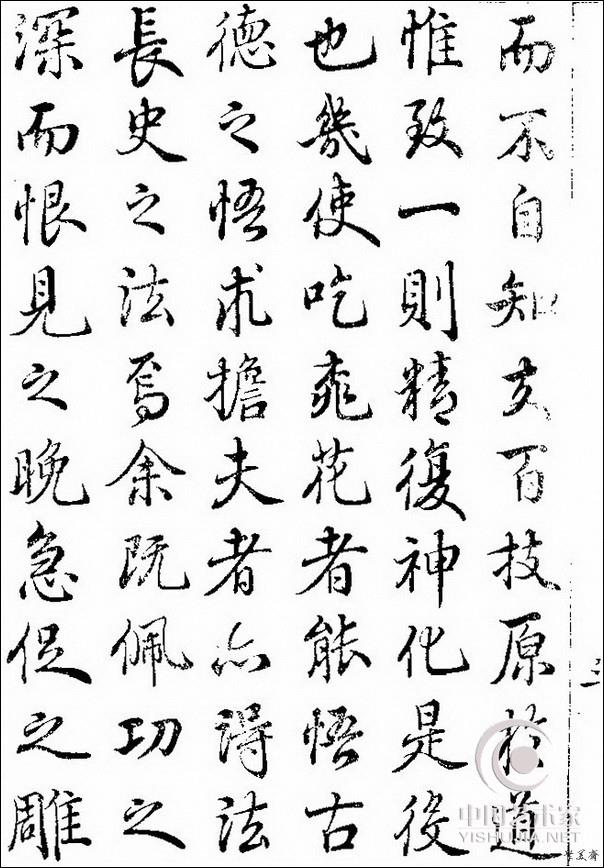 而不自知夫百技原於道
惟致一則精復神化是役
也幾使吃桃花者能悟古
德之悟求擔夫者亦得法
長史之法焉余既佩功之
深而恨見之晚急促之雕
中国艺术家
YISHUJIA.NET